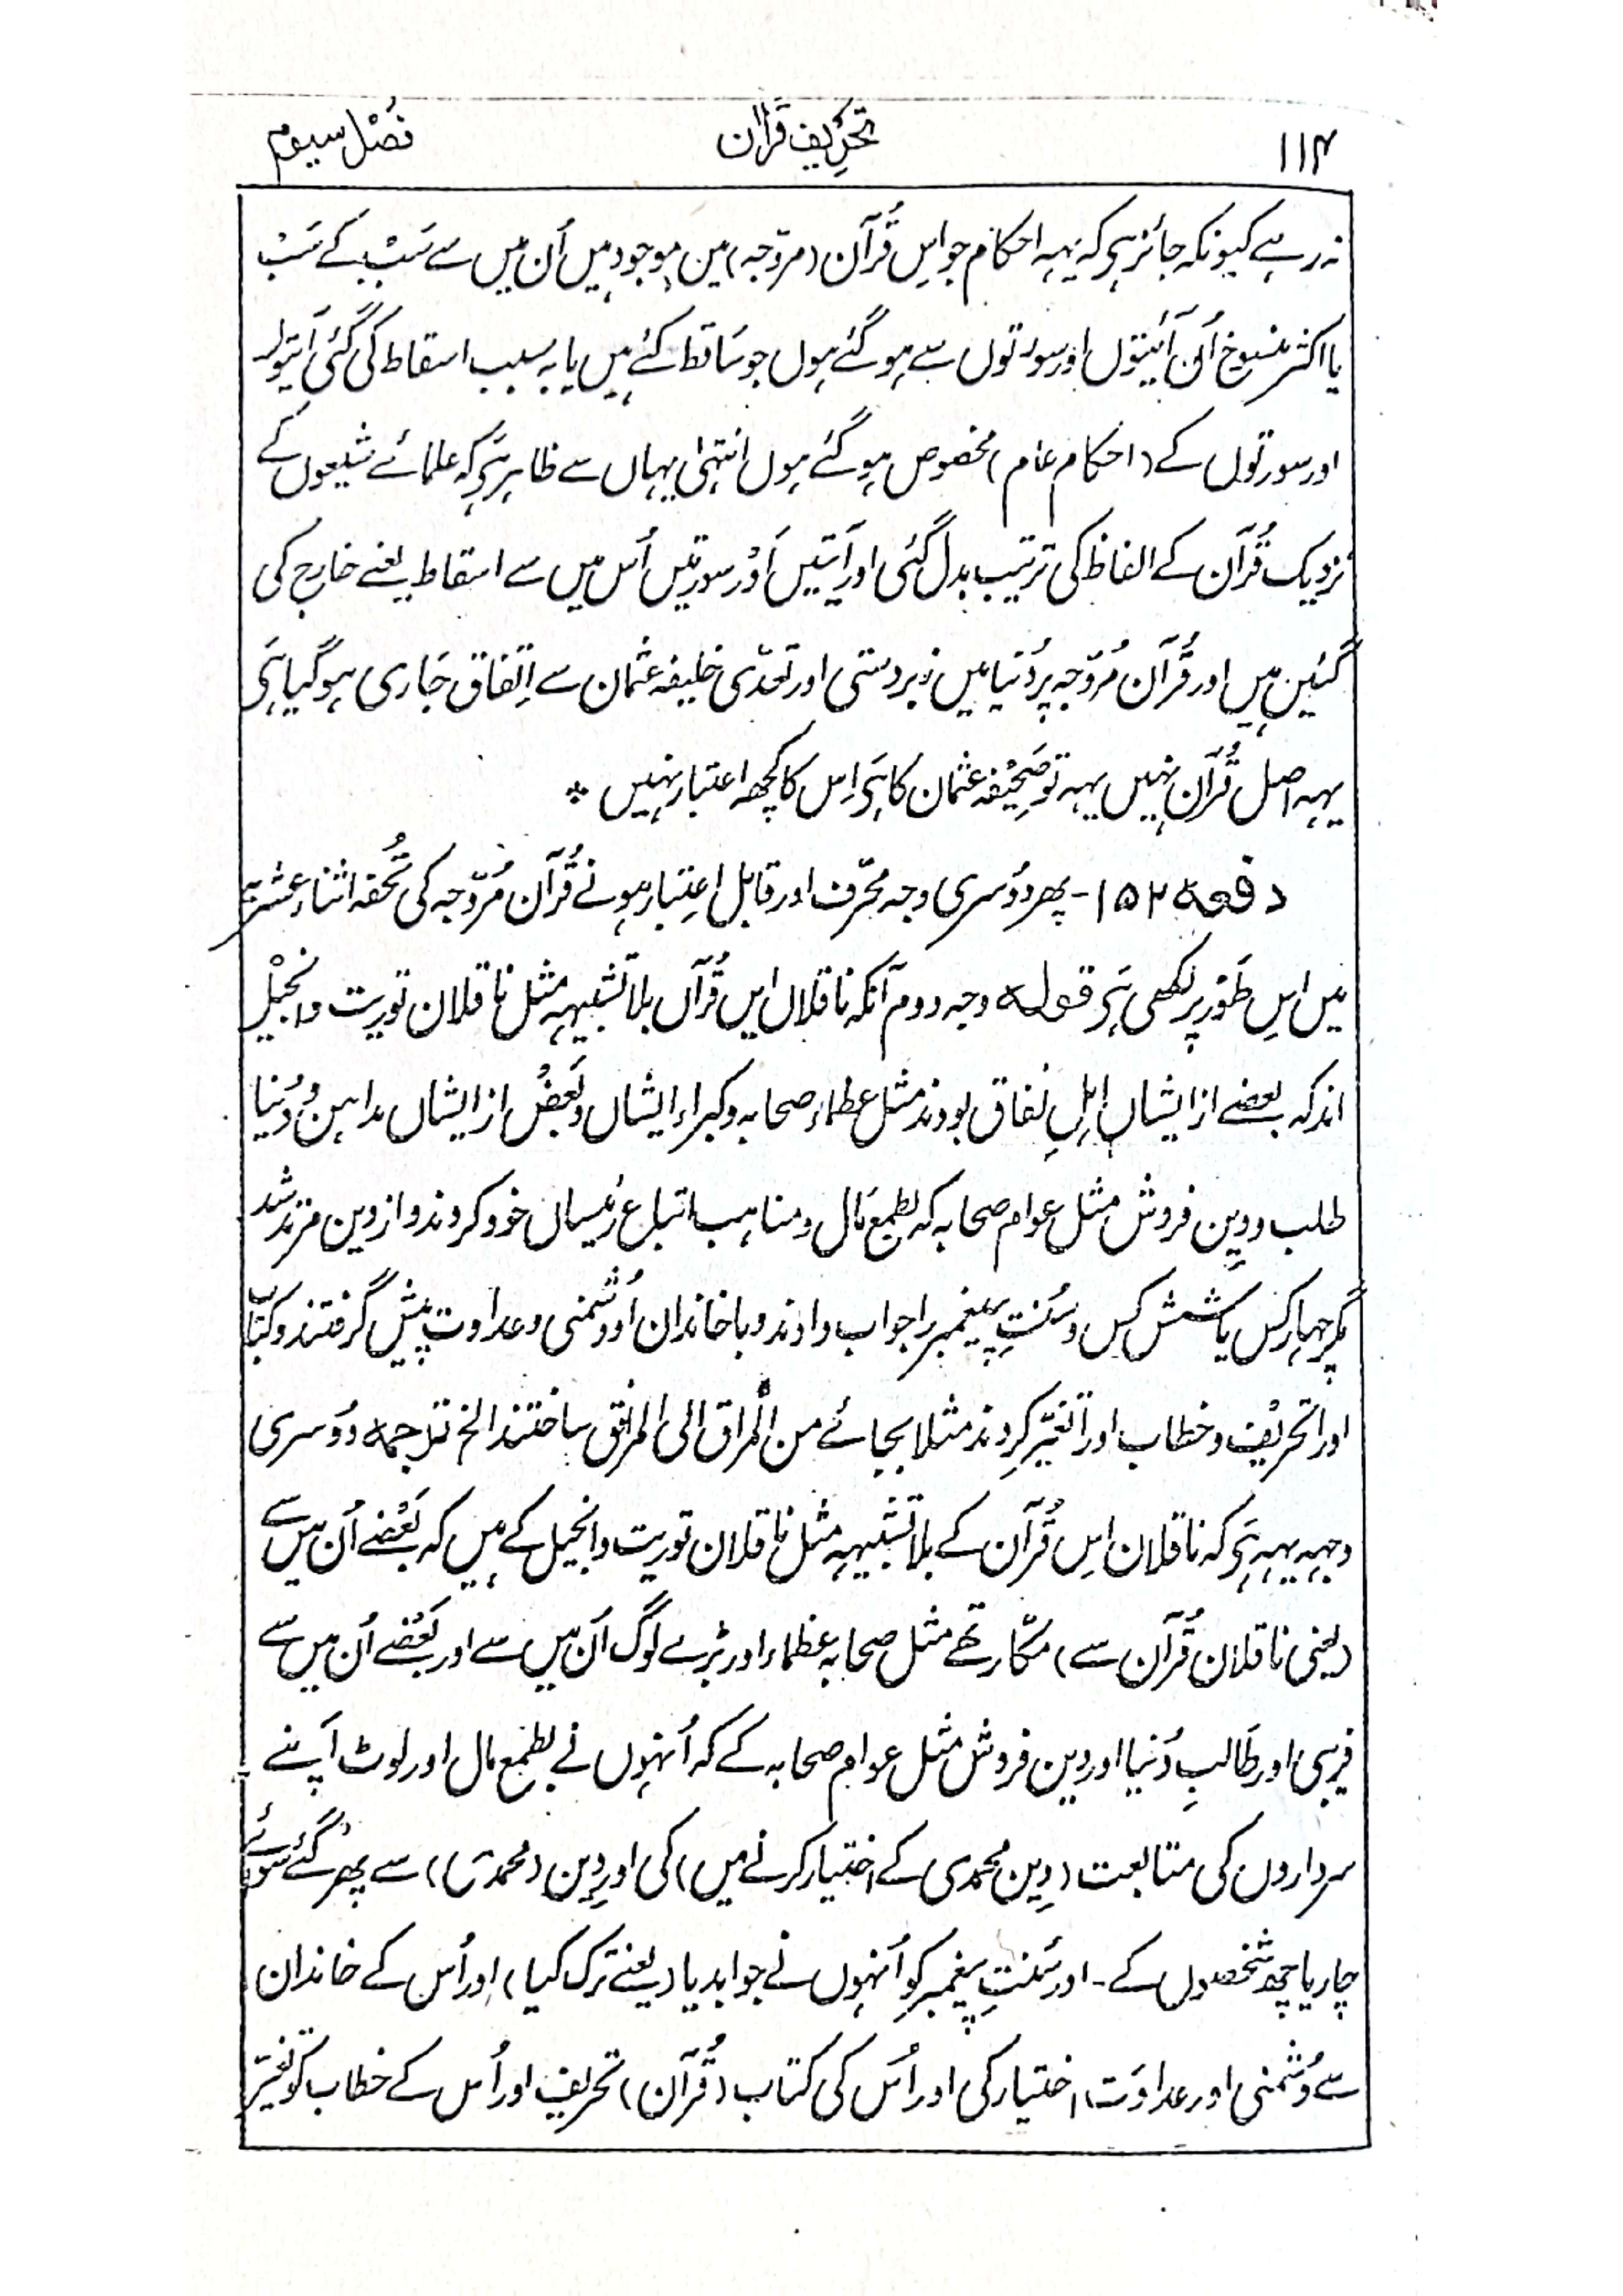 ۱۱۴ تحریف قرآن فصل سیوم
نہ رہے کیونکہ جائز ہی کہ یہہ احکام جو اِس قُرآن (مروّجہ) مین موجود ہیں اُن میں سے سَبْ کے سَبْ
یا اکثر منسوخ اُن آئیتوں اور سورتوں سے ہو گئے ہوں جو سَاقط کئے ہیں یا بہ سبب اسقاط کی گئی آیتوں
اور سورتوں کے (احکام عام) مخصوص ہو گئے ہوں انتہٰی یہاں سے ظاہر ہَی کہ علمائے شیعوں کے
نزدیک قُرآن کے الفاظ کی ترتیب بدل گئی اور آیَتیں اَوْر سورتیں اُس میں سے اسقاط یعنے خارج کی
گئیں ہیں اور قُرآن مُروّجہ پر دُنیا میں زبردستی اور تعدّی خلیفہ عثمان سے اِتّفاق جَاری ہو گیا ہَی
یہہ اصل قُرآن نہیں یہہ تو صَحِیْفہ عثمان کا ہَی اِس کا کچھ اعتبار نہیں *
دفعہ ۱۵۲ - پھر دوُسری وجہ محرّف اور قابل اِعتبار ہونے قُرآن مُرّوجہ کی تُحفہ اثناءعشریّہ
میں اِس طَوْر پر لکھی ہَی قولہ وجہ دوم آنکہ ناقلان ایں قُرآں بلاتشبیہہ مثل ناقلان توریت وانجیْل
اند کہ بعضے از ایشاں اہلِ نفاق بودند مثل عظماء صحابہ وکبراء ایشاں وبَعضْ از ایشاں مداہن وُدنیا
طلب و دِین فروش مثل عوام صحابہ کہ بطمع مَال ومناہب اتباع رئیساں خود کردند و از دین مرتد شد
مگر چہار کس یا شش کس و سُنتِ پیغمبر را جواب دادند و با خاندان او دُشمنی و عداوت پیش گرفتند و کتاب
اورا تحریْف و خطاب اورا تغیّر کرِدند مثلا بجائے من المراق الی المرافق ساختند الخ ترجمہ دوُسری
وجہہ یہہ ہَی کہ ناقلان اِس قُرآن کے بلاتشبیہہ مثل ناقلان توریت وانجیل کے ہیں کہ بَعْضے اُن میں سے
(یعنی ناقلان قُرآن سے) مکّار تھے مثل صحابہ عظماء اور بڑے لوگ اُن میں سے اور بَعْضے اُن میں سے
فریبی اور طَالبِ دُنیا اور دین فروش مثل عوام صحابہ کے کہ اُنہوں نے بطمع مال اور لوٹ اَپنے
سرداروں کی متابعت (دِین محمدی کے اختیار کرنے میں) کی اور دِین (محمدی) سے پھر گئے سوائے
چار یا چھ شخصوں کے - اور سُنتِ پیغمبر کو اُنہوں نے جوابدیا (یعنے ترک کیا) اور اُس کے خاندان
سے دُشمنی اور عداوَت اختیار کی اور اُس کی کتاب (قُرآن) تحریف اور اُس کے خطاب کو تغیّر